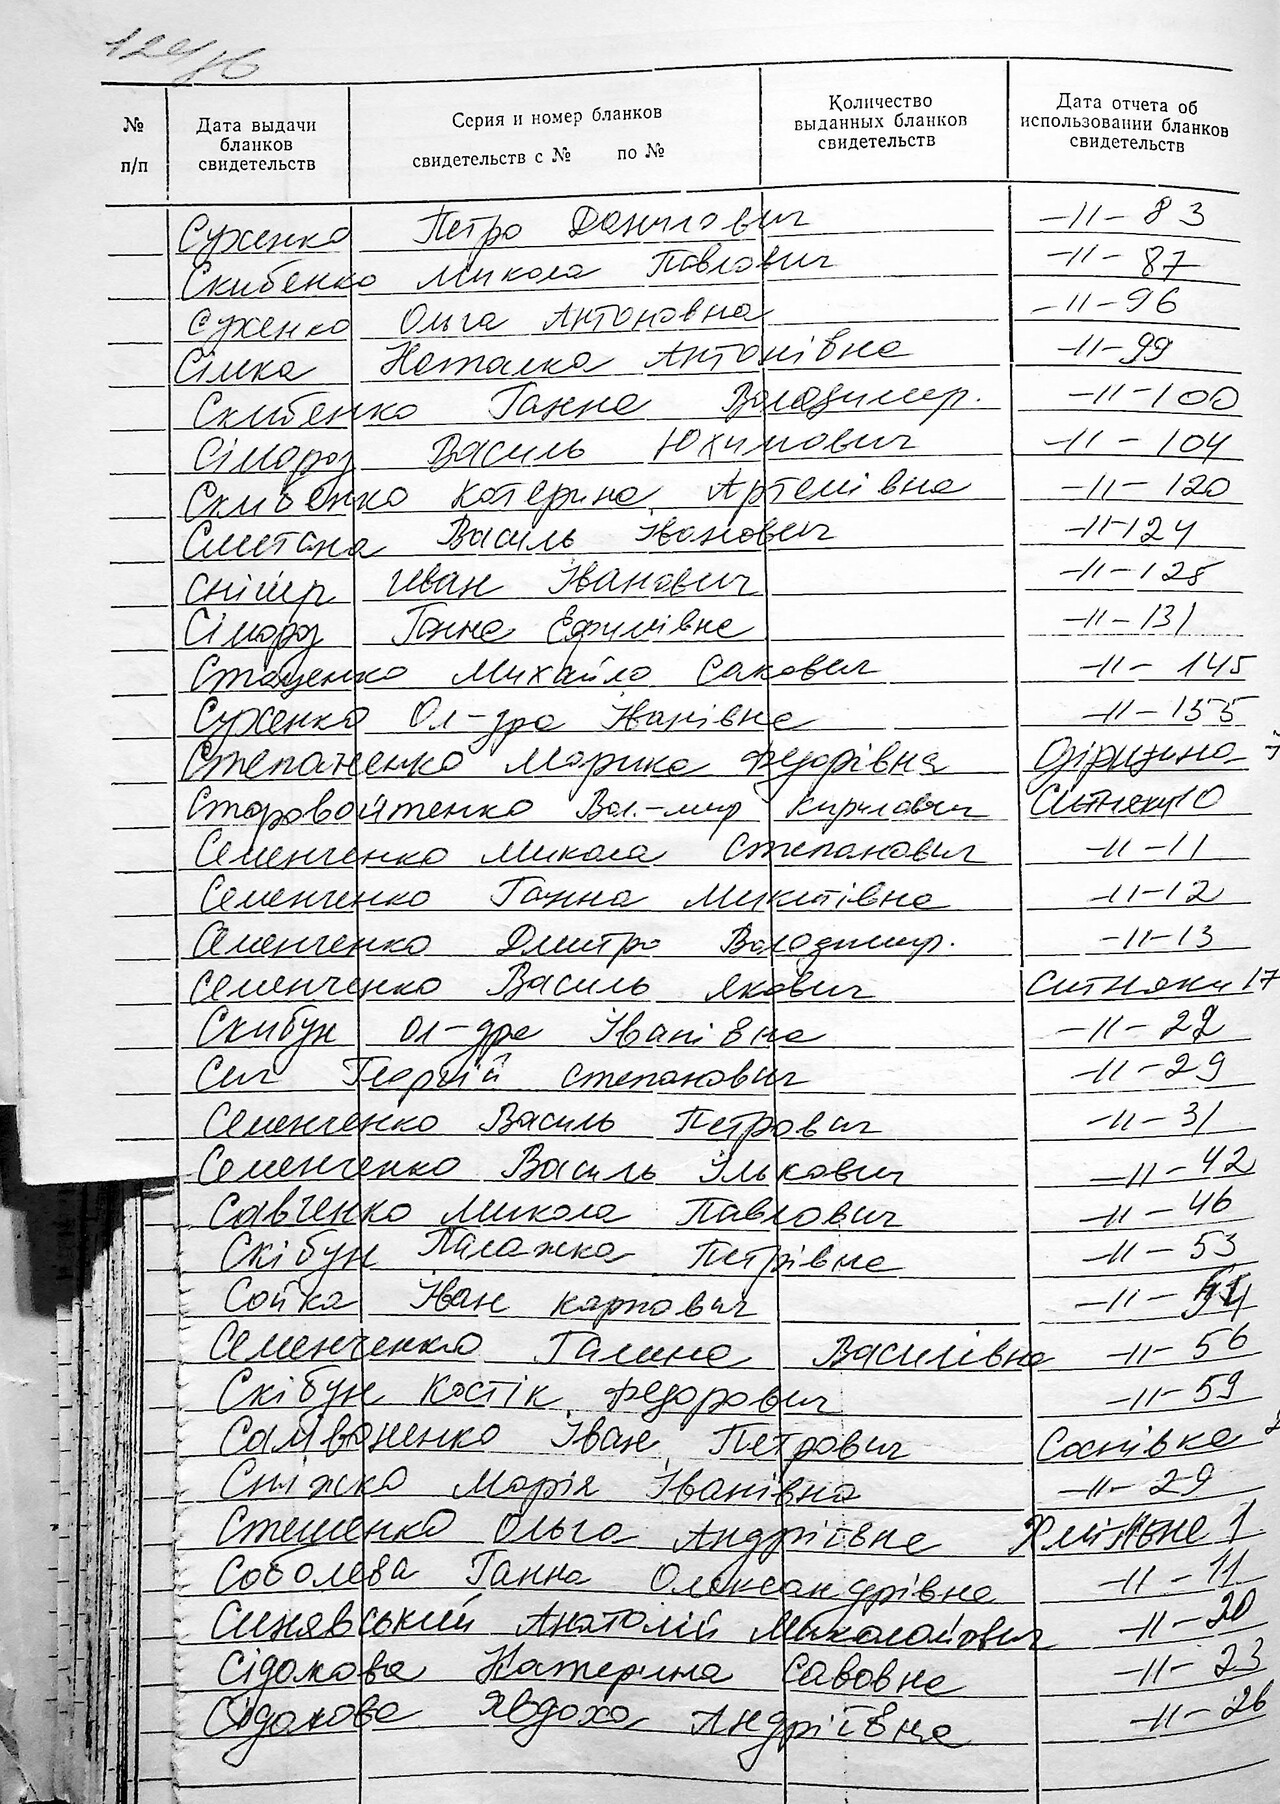 № п/п
Дата выдачи бланков свидетельств
Серия и номер бланков свидетельств с № по №
Количество выданных бланков свидетельств
Дата отчета об использовании бланков свидетельств
Сухенко Петро Данилович -11- 83
Скибенко Микола Павлович -11- 87
Сухенко Ольга Антоновна -11-96
Сімка Наталка Антонівна -11-99
Скибенко Ганна Володимир. -11-100
Сімороз Василь Юхимович -11- 104
Скибенко Катерина Артемівна -11- 120
Сметана Василь Іванович -11-124
Іван Іванович -11-128
Сімороз Ганна Ефимівна -11-131
Стаценко Михайло Сакович -11- 145
Сухенко Ол-дра Іванівна -11-155
Степаненко Марика Федорівна
Старовойтенко Вол.-мир Кирилович Ситняки 10
Семенченко Микола Степанович -11-11
Семенченко Ганна Микитівна -11-12
Семенченко Дмитро Володимир. -11-13
Семенченко Василь Якович Ситняки 17
Скибун Ол-дра Іванівна -11-22
Сич Георгій Степанович -11-29
Семенченко Василь Петрович -11-31
Семенченко Василь Ількович -11-42
Савченко Микола Павлович -11-46
Скібун Палажка Петрівна -11-53
Сойка Іван Карпович -11-
Семенченко Галина Василівна -11-56
Скібун Костік Федорович -11-59
Самвоненко Іван Петрович Соснівка
Сніжко Марія Іванівна -11-29
Стешенко Ольга Андріївна Хмільне 1
Соболева Ганна Олександрівна -11-11
Синявський Анатолій Миколайович -11-20
Сідакова Катерина Савовна -11-23
Сідакова Явдоха Андріївна -11-26